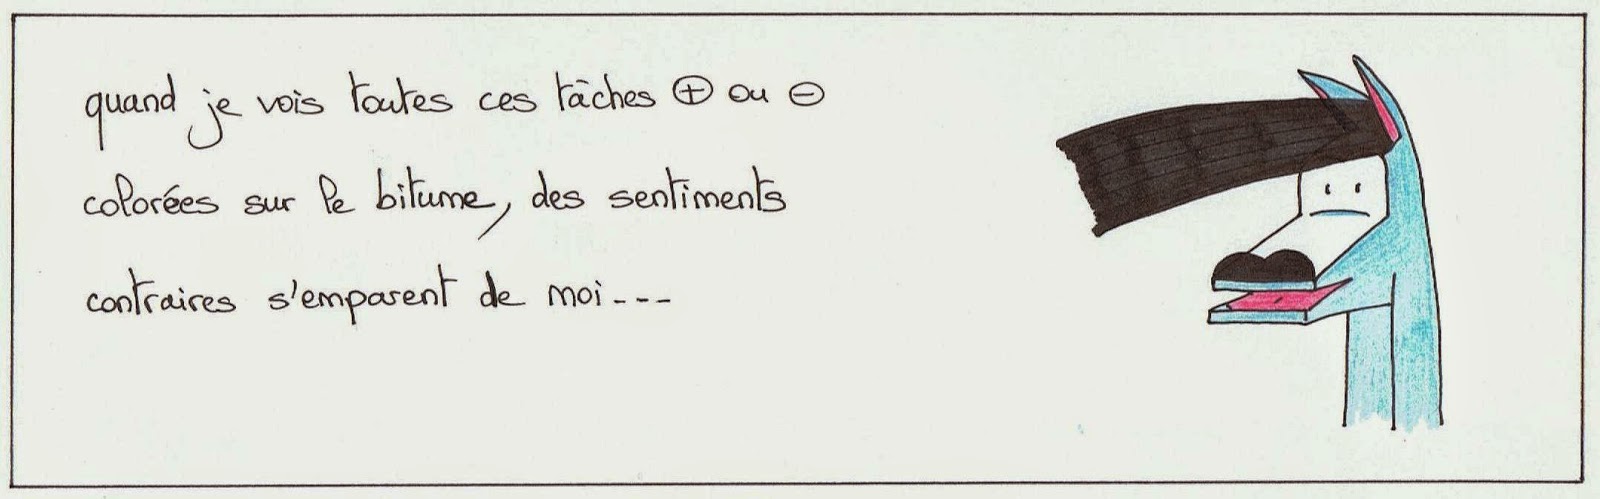 quand je vois toutes ces tâches ⊕ ou ⊖
colorées sur le bitume, des sentiments
contraires s'emparent de moi---